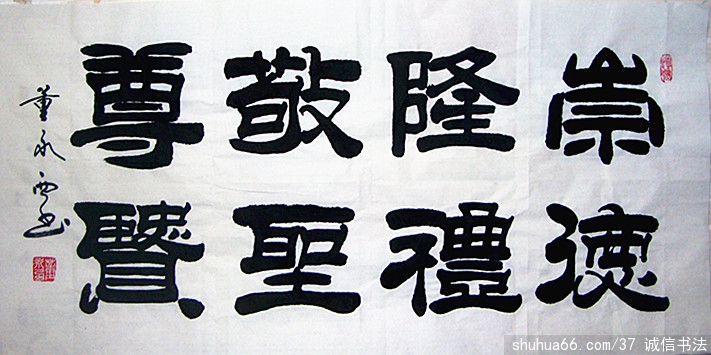 崇德
隆禮
敬聖
尊賢
董永西书
shuhua66.com/37 诚信书法